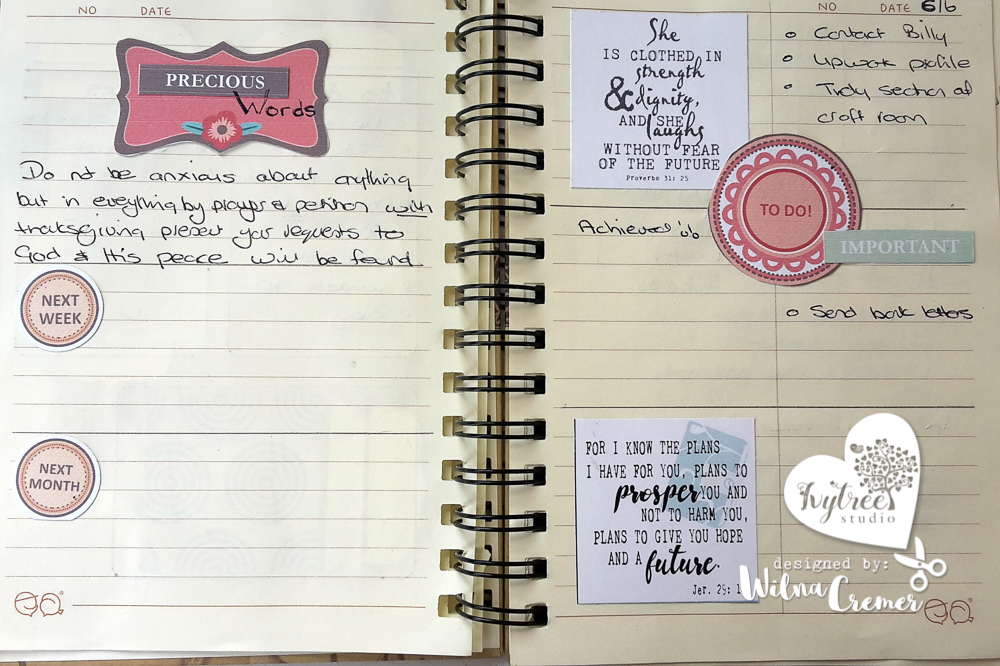 NO DATE
PRECIOUS
Words
Do not be anxious about anything
but in everything by prayer & petition with
thanksgiving present your requests to
God & His peace will be found.
NEXT
WEEK
NEXT
MONTH
NO DATE 6/6
She
IS CLOTHED IN
strength
& dignity,
AND SHE
laughs
WITHOUT FEAR
OF THE FUTURE
Proverbs 31: 25
Contact Billy
Upwork profile
Tidy section of
craft room
TO DO!
IMPORTANT
Achieved
Send bank letters
FOR I KNOW THE PLANS
I HAVE FOR YOU, PLANS TO
prosper YOU AND
NOT TO HARM YOU,
PLANS TO GIVE YOU HOPE
AND A future.
Jer. 29: 1
Ivytree
studio
designed by:
Wilna Cremer